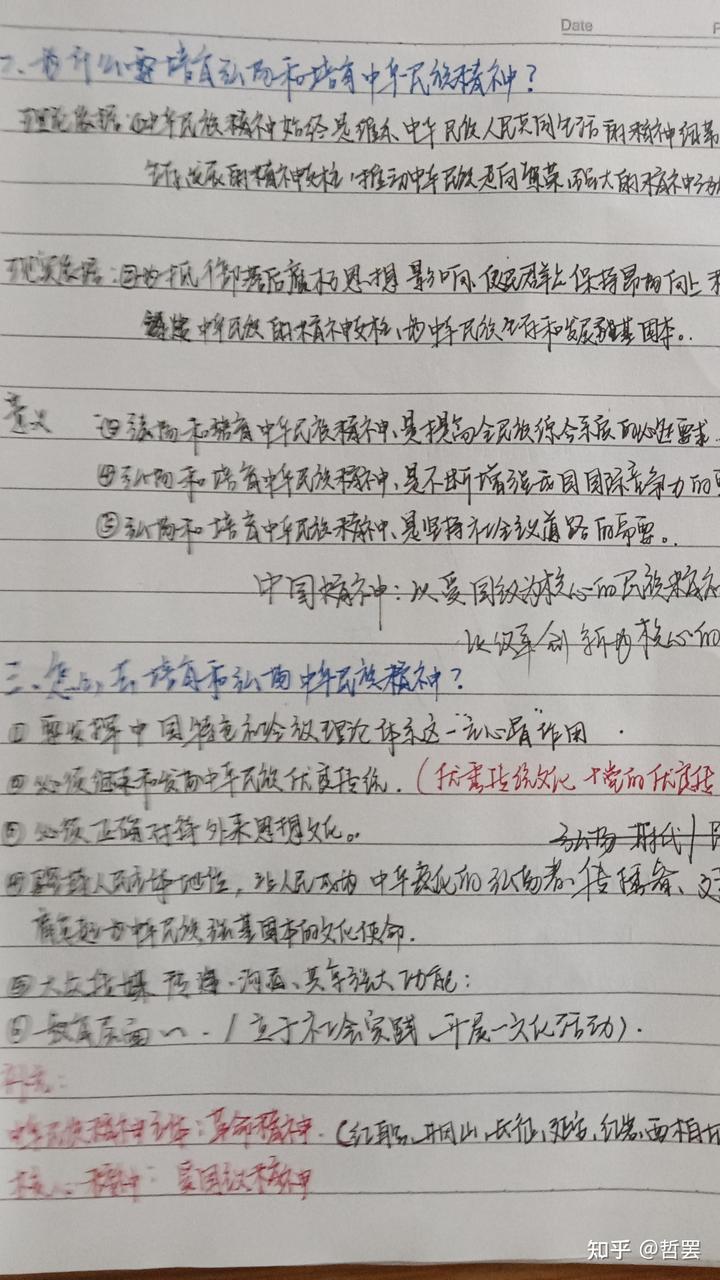 Date
二、为什么要培育弘扬和培育中华民族精神?
理论依据:①中华民族精神始终是维系中华民族人民共同生活的精神纽带
生存发展的精神支柱,推动中华民族走向繁荣、强大的精神动
现实依据:②为抵御落后腐朽思想影响,使民群上保持昂扬向上
中华民族的精神支柱,为中华民族生存和发展强基固本。
意义 ③弘扬和培育中华民族精神,是提高全民族综合素质的必然要求
④弘扬和培育中华民族精神,是不断增强我国国际竞争力的
⑤弘扬和培育中华民族精神,是坚持社会主义道路的需要。
中国精神:以爱国主义为核心的民族精神
以改革创新为核心的
三、怎么去培育和弘扬中华民族精神?
①要发挥中国特色社会主义理论体系这一"主心骨"作用
②必须继承和发扬中华民族优良传统.(优秀传统文化+党的优良传
③必须正确对待外来思想文化。
弘扬 时代
④人民主体地位,让人民成为中华文化的弘扬者、传播者、
为中华民族强基固本的文化使命.
⑤大众传媒 、共享强大功能:
⑥教育层面 (立于社会实践,开展一文化活动).
补充:
中华民族精神主体:革命精神.(红船,井冈山,长征,延安,红岩,西柏坡
核心精神:爱国主义精神
知乎 @哲罢